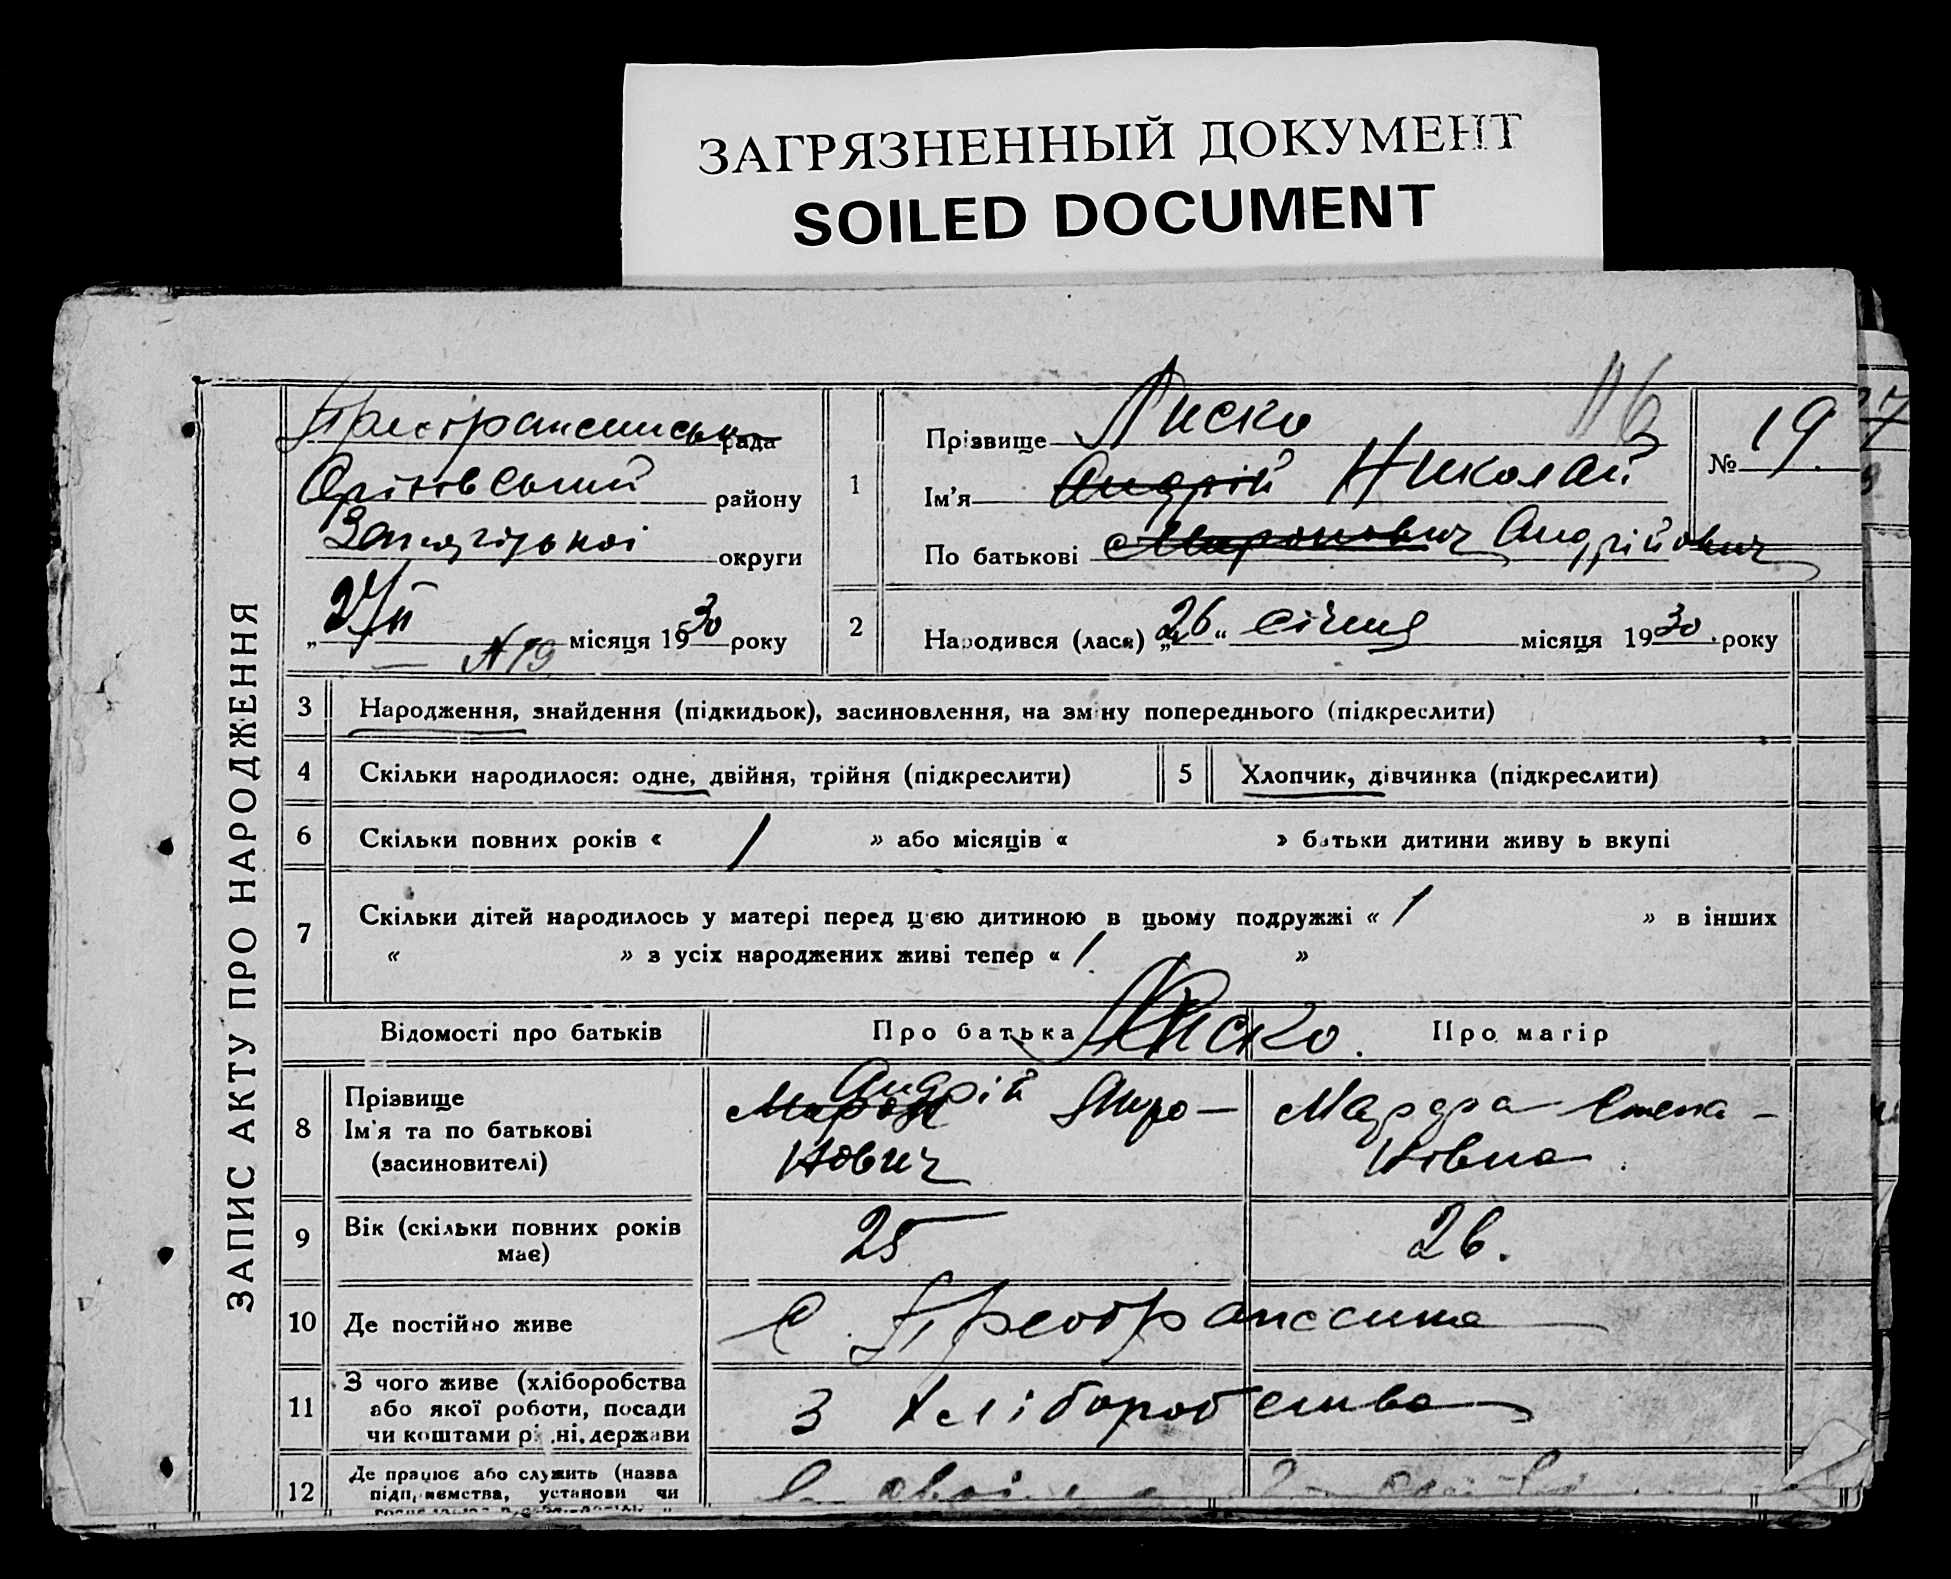 ЗАГРЯЗНЕННЫЙ ДОКУМЕНТ
SOILED DOCUMENT
ЗАПИС АКТУ ПРО НАРОДЖЕННЯ
рада
Оріхівський району
округи
27/II місяця 1930 року
N 19
116
1 Прізвище Лиско
№ 19
Ім'я Андрій Николай
По батькові Миронович Андрійович
2 Народився (лася) „26“ січня місяця 1930 року
3 Народження, знайдення (підкидьок), засиновлення, на зміну попереднього (підкреслити)
4 Скільки народилося: одне, двійня, трійня (підкреслити) 5 Хлопчик, дівчинка (підкреслити)
6 Скільки повних років « / » або місяців « » батьки дитини живуть вкупі
7 Скільки дітей народилось у матері перед цією дитиною в цьому подружжі « 1 » в інших
« » з усіх народжених живі тепер « 1 »
Відомості про батьків Про батька Про матір
Лиско.
8 Прізвище
Ім'я та по батькові
(засиновителі)
Мирон Андрій Миро-
нович
Степа-
нівна
9 Вік (скільки повних років
має)
25 26.
10 Де постійно живе
с.
11 З чого живе (хліборобства
або якої роботи, посади
чи коштами рідні, держави
З хліборобства
12 Де працює або служить (назва
підприємства, установи чи